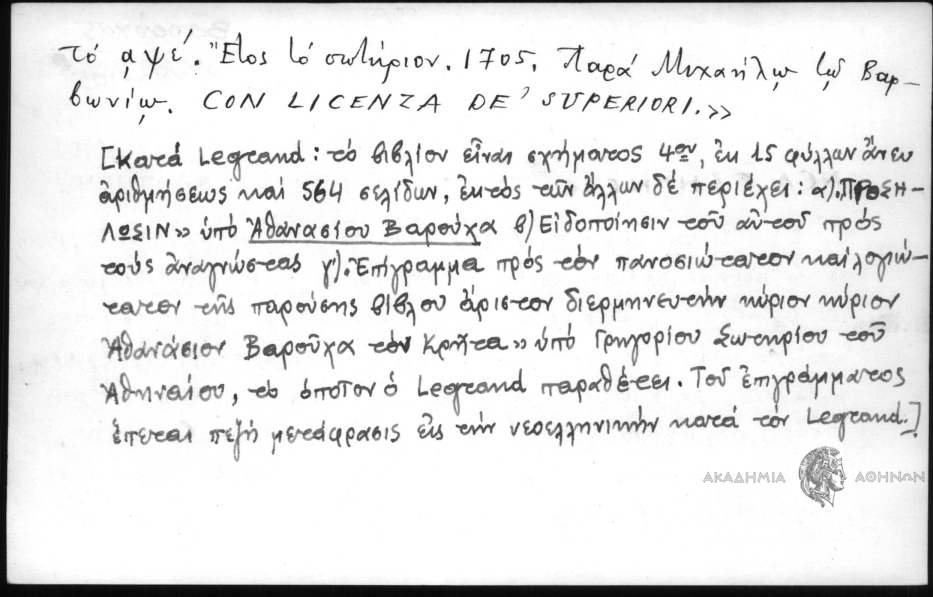 τό αψέ. "Ετος τό σωτήριον. 1705. Παρά Μιχαήλω τῷ Βαρ-
βωνίῳ. CON LICENZA DE' SUPERIORI.»
[Κατά Legrand: τό βιβλίον εἶναι σχήματος 4ον, ἐκ 15 φύλλων ἄνευ
ἀριθμήσεως καί 564 σελίδων, ἐκτός τῶν ἄλλων δέ περιέχει: α). ΠΡΟΣΗ-
ΛΩΣΙΝ» ὑπό Ἀθανασίου Βαρούχα β) Εἰδοποίησιν τοῦ αὐτοῦ πρός
τούς ἀναγνώστας γ). Ἐπίγραμμα πρός τόν πανοσιώτατον καί λογιώ-
τατον τῆς παρούσης βίβλου ἄριστον διερμηνευτήν κύριον κύριον
Ἀθανάσιον Βαροῦχα τόν Κρῆτα» ὑπό Γρηγορίου Σωτηρίου τοῦ
Ἀθηναίου, τό ὁποῖον ὁ Legrand παραθέτει. Τοῦ ἐπιγράμματος
ἕπεται πεζή μετάφρασις εἰς τήν νεοελληνικήν κατά τόν Legrand.]
ΑΚΑΔΗΜΙΑ ΑΘΗΝΩΝ